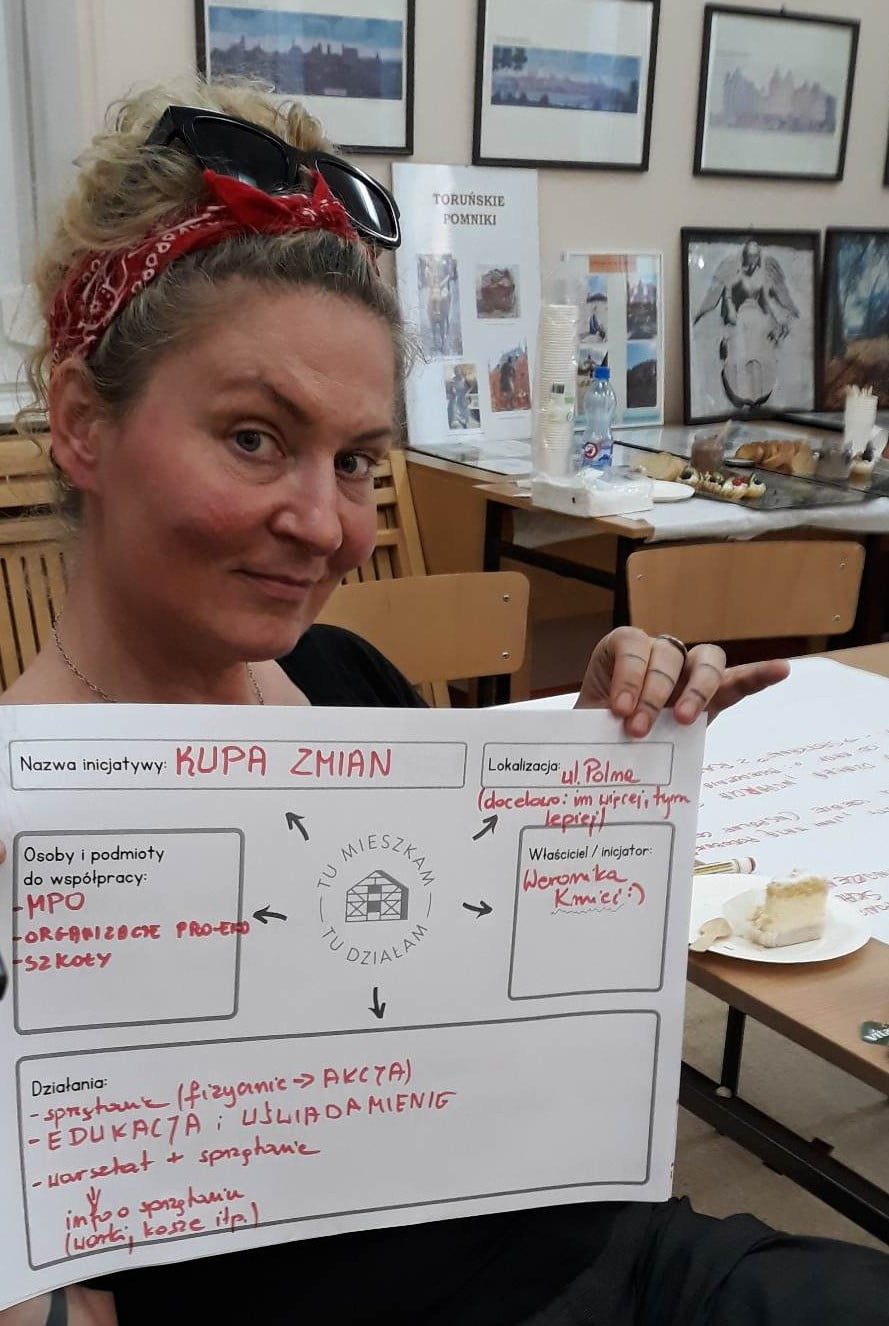 TORUŃSKIE
POMNIKI
Nazwa inicjatywy: KUPA ZMIAN
Lokalizacja: ul. Polna
(docelowo: im więcej, tym
lepiej)
Osoby i podmioty
do współpracy:
- MPO
- ORGANIZACJE PRO-EKO
- SZKOŁY
TU MIESZKAM
TU DZIAŁAM
Właściciel / inicjator:
Weronika
Kmieć :)
Działania:
- sprzątanie (fizycznie -> AKCJA)
- EDUKACJA i UŚWIADAMIENIE
- warsztat + sprzątanie
info o sprzątaniu
(worki, kosze itp.)